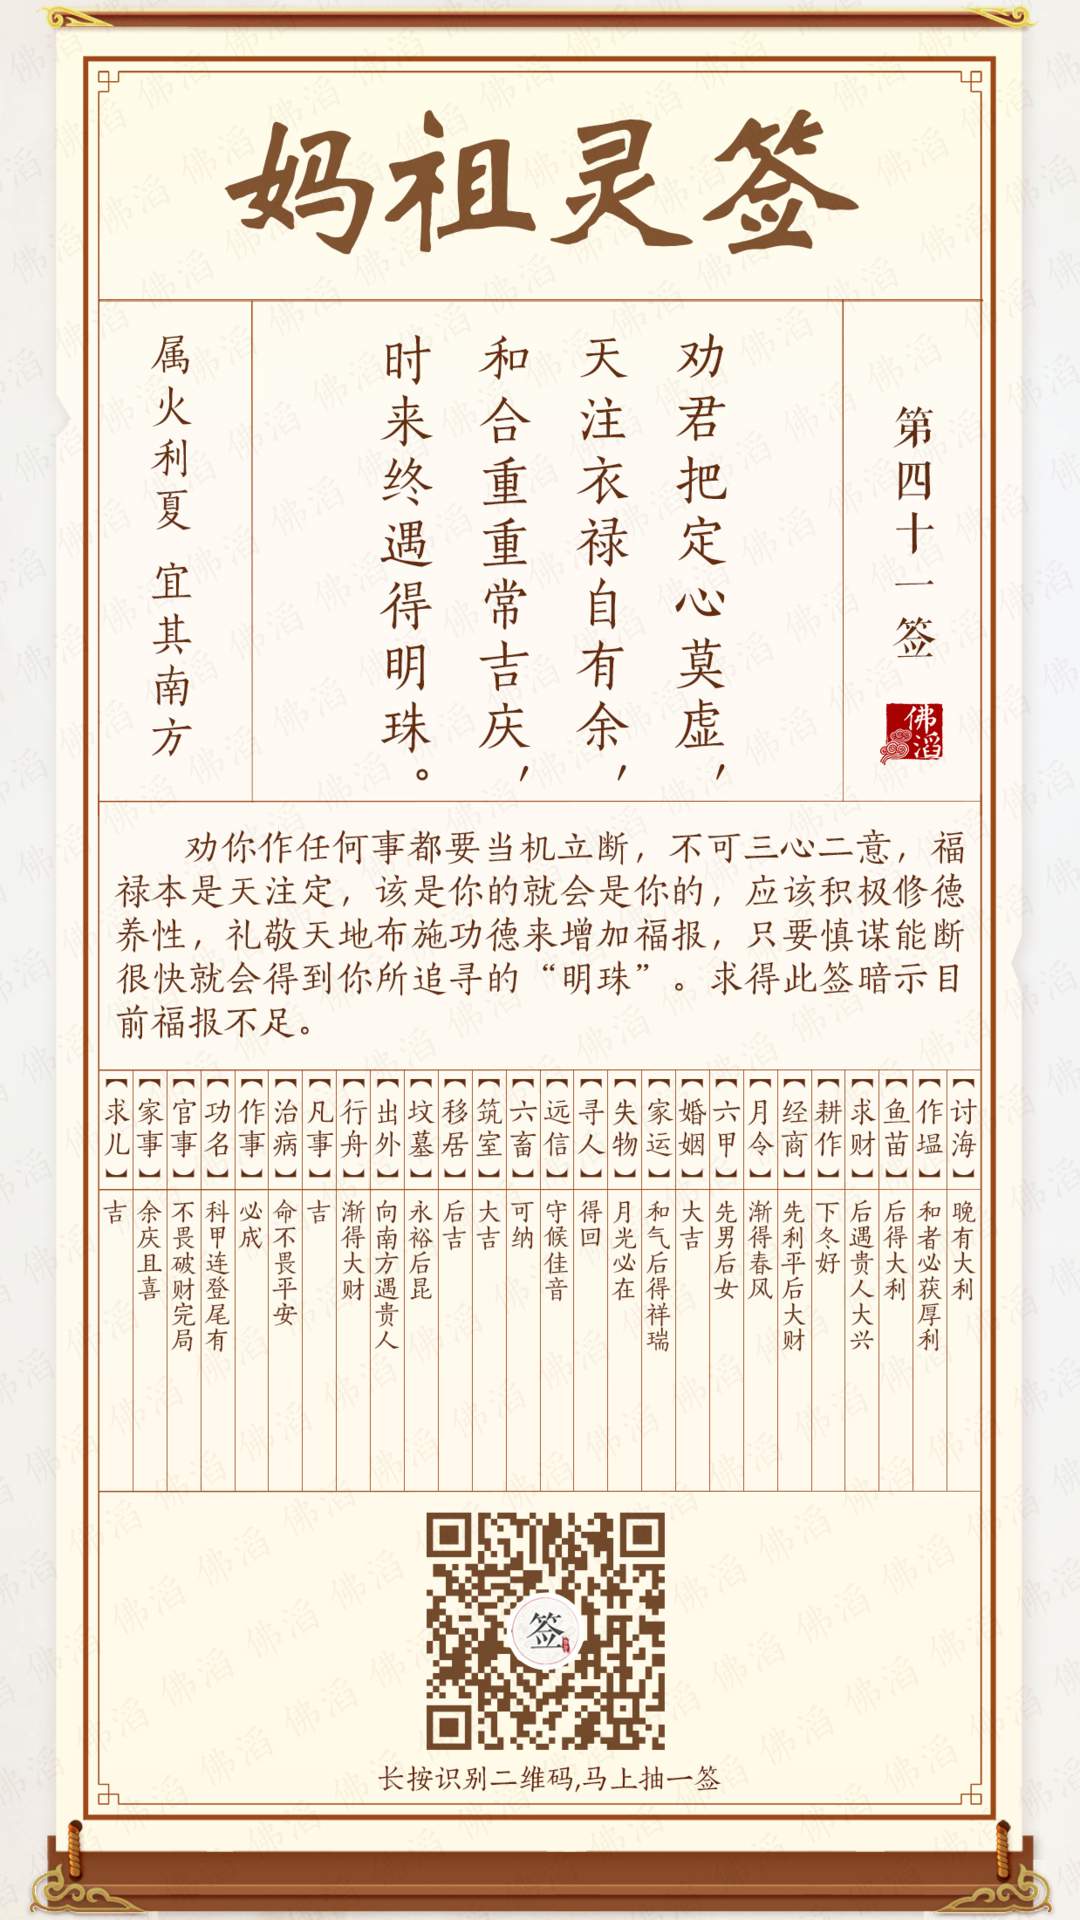 妈祖灵签
第四十一签
佛滔
劝君把定心莫虚，
天注衣禄自有余，
和合重重常吉庆，
时来终遇得明珠。
属火利夏 宜其南方
劝你作任何事都要当机立断，不可三心二意，福
禄本是天注定，该是你的就会是你的，应该积极修德
养性，礼敬天地布施功德来增加福报，只要慎谋能断
很快就会得到你所追寻的“明珠”。求得此签暗示目
前福报不足。
【讨海】晚有大利
【作塭】和者必获厚利
【鱼苗】后得大利
【求财】后遇贵人大兴
【耕作】下冬好
【经商】先利平后大财
【月令】渐得春风
【六甲】先男后女
【婚姻】大吉
【家运】和气后得祥瑞
【失物】月光必在
【寻人】得回
【远信】守候佳音
【六畜】可纳
【筑室】大吉
【移居】后吉
【坟墓】永裕后昆
【出外】向南方遇贵人
【行舟】渐得大财
【凡事】吉
【治病】命不畏平安
【作事】必成
【功名】科甲连登尾有
【官事】不畏破财完局
【家事】余庆且喜
【求儿】吉
签
长按识别二维码,马上抽一签